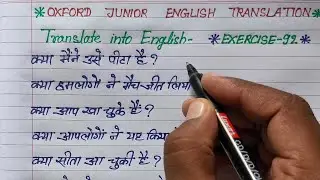 *OXFORD JUNIOR ENGLISH TRANSLATION*
Translate into English- *EXERCISE-92.*
क्या मैंने उसे पीटा है?
क्या हमलोगों ने मैच जीत लिया
क्या आप खा चुके हैं?
क्या आपलोगों ने यह
क्या सीता आ चुकी है?